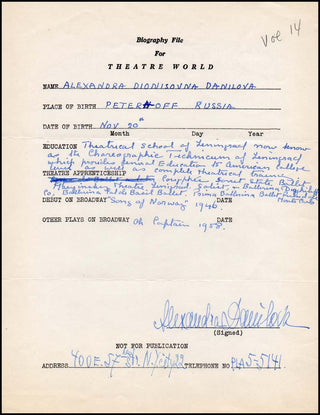 Vol 14
Biography File
For
THEATRE WORLD
NAME ALEXANDRA DIONISOVNA DANILOVA
PLACE OF BIRTH PETERHOFF RUSSIA
DATE OF BIRTH NOV 20
Month Day Year
EDUCATION Theatrical School of Leningrad now know
as the Choreographic Technicum of Leningrad
which provides formal Education to American college
level as well as complete theatrical training
THEATRE APPRENTICESHIP Soviet State Ballet
Maryinsky Theatre Leningrad Soloist Ballerina
Co. Ballerina Ballet Prima Ballerina Ballet
DEBUT ON BROADWAY "Song of Norway" 1946 DATE
OTHER PLAYS ON BROADWAY Oh Captain 1958 DATE
Alexandra Danilova
(Signed)
NOT FOR PUBLICATION
ADDRESS 400 E. 57 St. N.Y. City 22 TELEPHONE NO PLA5-5141